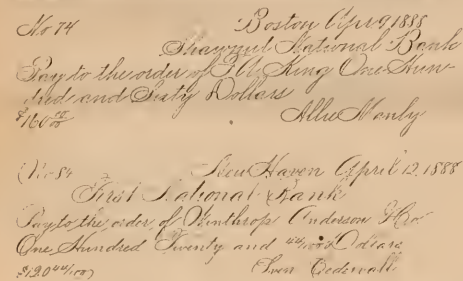 No 74 Boston Apr 9, 1888
Shawmut National Bank
Pay to the order of F. A. King One Hun-
dred and Sixty Dollars
$160 00/100 Allie Manly
No 84 New Haven April 12, 1888
First National Bank
Pay to the order of Winthrop Anderson & Bro
One Hundred Twenty and 44/100 Dollars
$120 44/100 Sven Cedervall